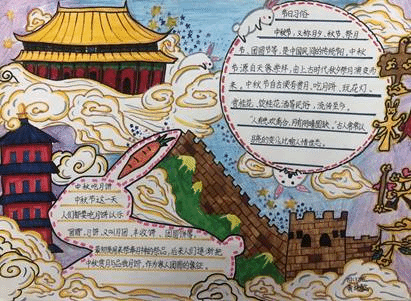 节日习俗
中秋节，又称月夕、秋节、祭月
节、团圆节等，是中国民间的传统节日，中秋
节源自天象崇拜，由上古时代秋夕祭月演变而
来，中秋节自古便有赏月、吃月饼、玩花灯、
赏桂花、饮桂花酒等民俗，流传至今。
“人有悲欢离合，月有阴晴圆缺”。古人常常以
月亮的变化比喻人情世态。
中秋吃月饼
中秋节这一天
人们都要吃月饼以示
“团圆”。月饼，又叫月团、丰收饼、团圆饼等，
最初是用来祭奉月神的祭品，后来人们逐渐把
中秋赏月与品尝月饼，作为家人团圆的象征。